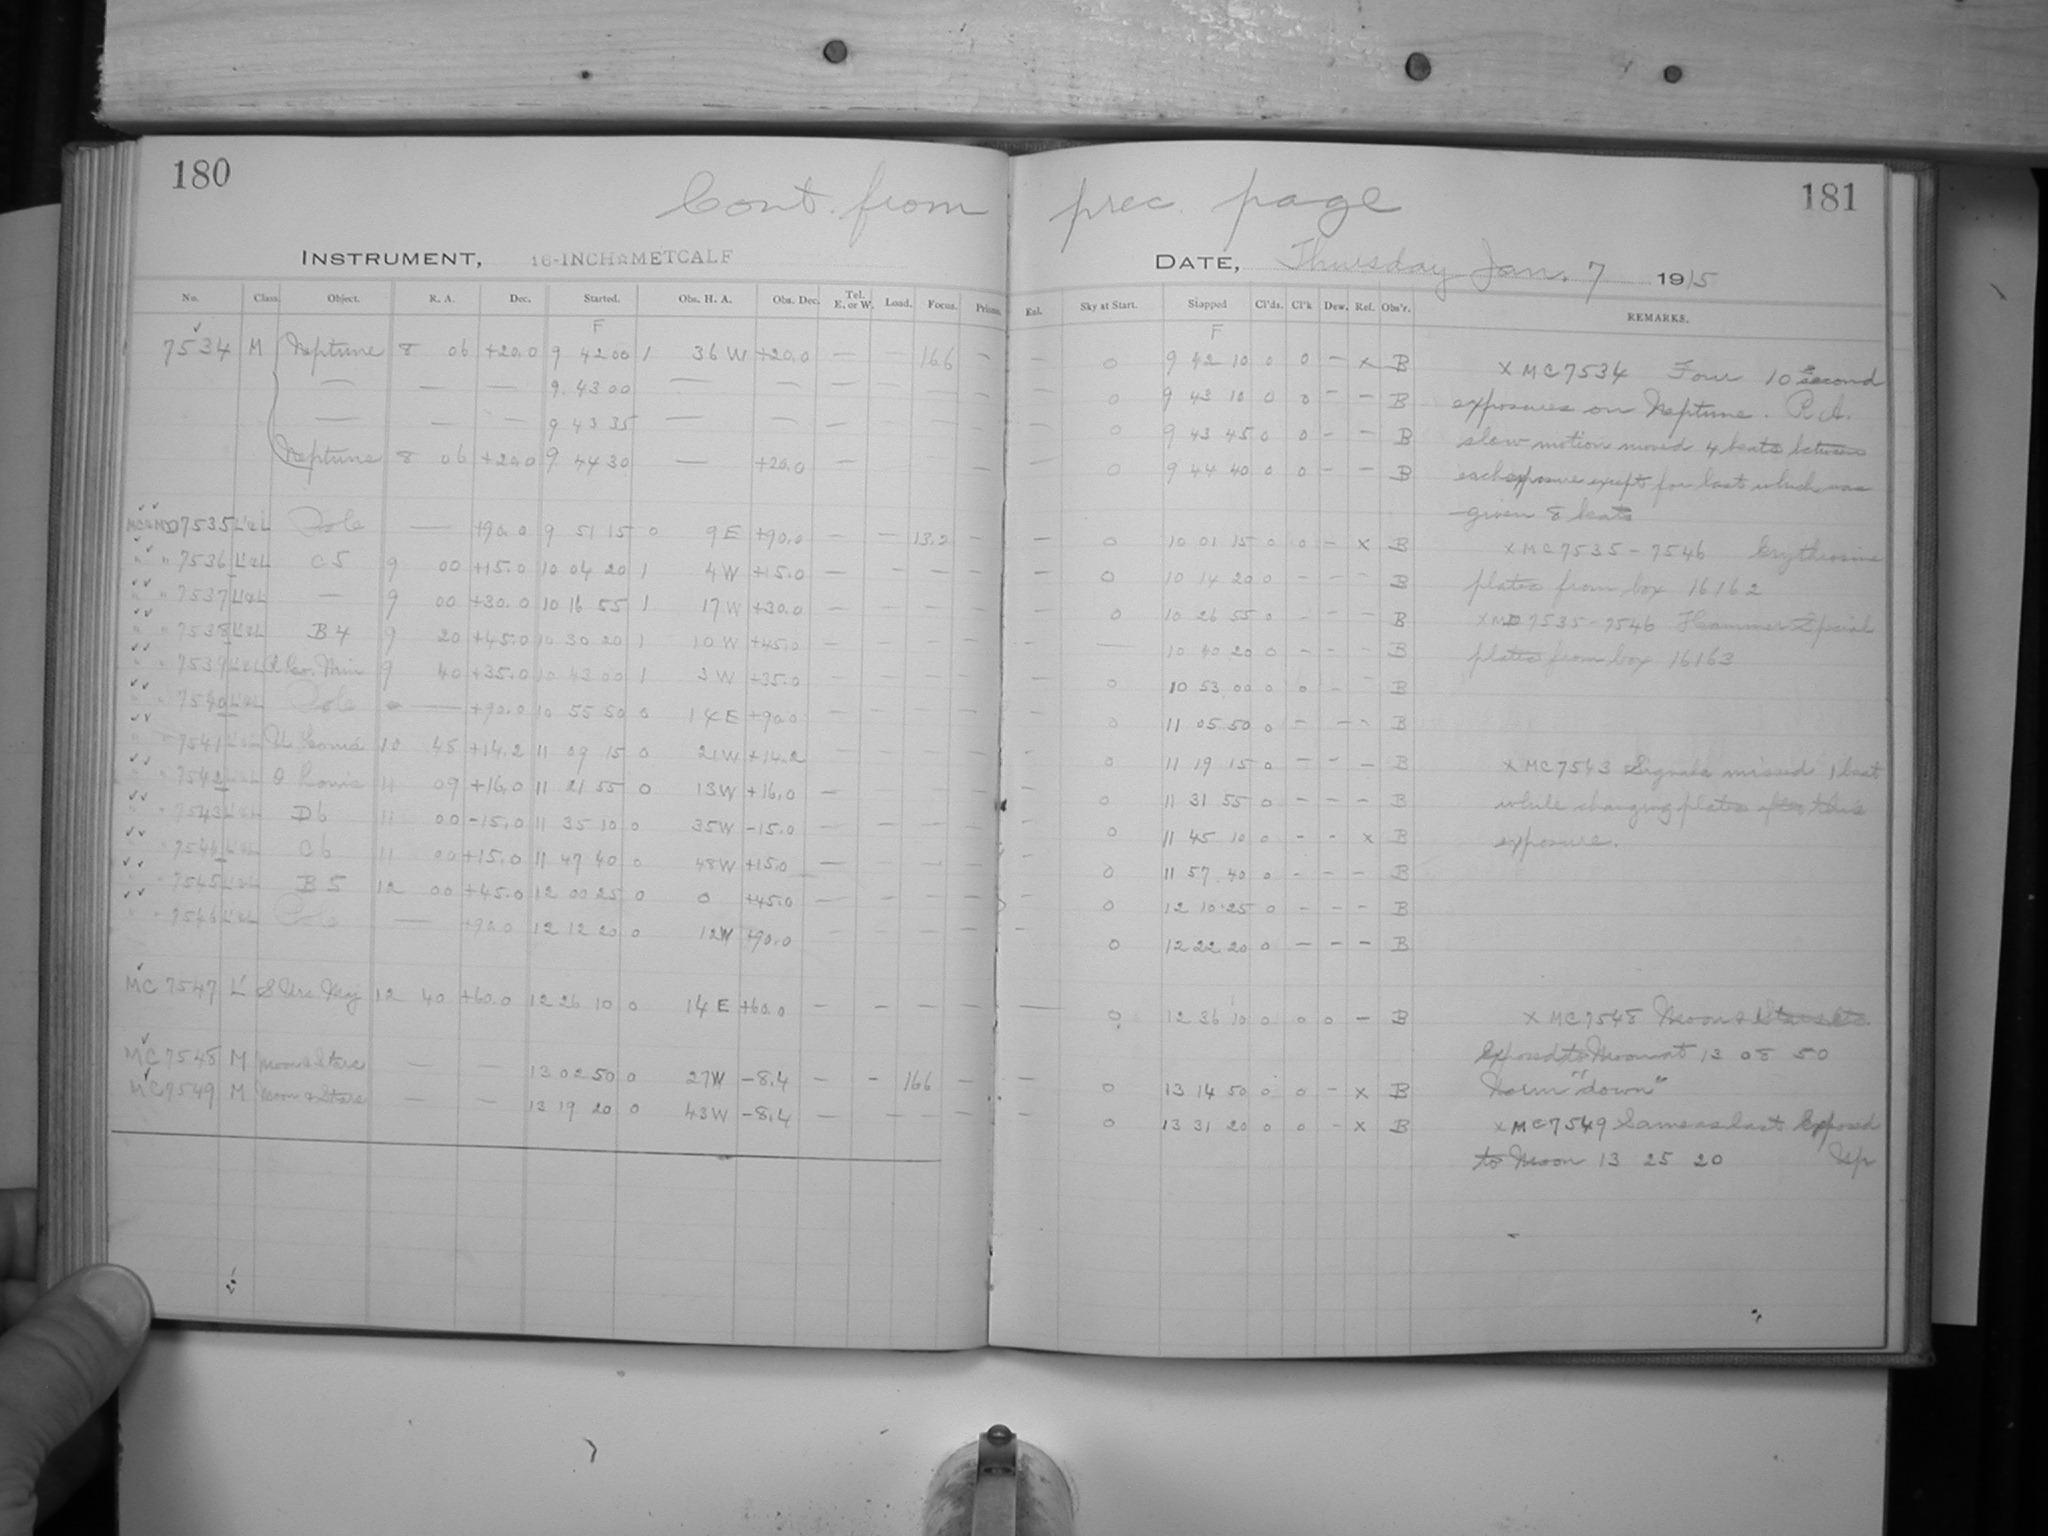 180
Cont. from prec. page
181
INSTRUMENT, 16-INCH METCALF
DATE, Thursday Jan. 7 1915
No. Class. Object. R. A. Dec. Started. Obs. H. A. Obs. Dec. Tel. E. or W. Load. Focus. Prisms. Eal. Sky at Start. Stopped Cl'ds. Cl'k Dew. Ref. Obs'r. REMARKS.
F F
7534 M Neptune 8 06 +20.0 9 42 00 1 36 W +20.0 — — 166 — — 0 9 42 10 0 0 — x B x MC7534 Four 10 second
— — — 9 43 00 — — — 0 9 43 10 0 0 — — B exposures on Neptune. R.A.
— — — 9 43 35 — — — 0 9 43 45 0 0 — — B slow motion moved 4 beats between
Neptune 8 06 +20.0 9 44 30 — +20.0 — — — 0 9 44 40 0 0 — — B each exposure except for last which was
given 8 beats
MC & MD 7535 L'&L Pole — +90.0 9 51 15 0 9 E +90.0 — — 13.2 — — 0 10 01 15 0 0 — x B x MC7535-7546 Erythrosine
" " 7536 L'&L C 5 9 00 +15.0 10 04 20 1 4 W +15.0 — — — — — 0 10 14 20 0 — — — B plates from box 16162
" " 7537 L'&L — 9 00 +30.0 10 16 55 1 17 W +30.0 — — — — — 0 10 26 55 0 — — — B x MD 7535-7546 Hammer Special
" " 7538 L'&L B 4 9 20 +45.0 10 30 20 1 10 W +45.0 — — — — — — 10 40 20 0 — — — B plates from box 16163
" " 7539 L'&L R Leo. Min 9 40 +35.0 10 43 00 1 3 W +35.0 — — — — — 0 10 53 00 0 0 — — B
" " 7540 L'&L Pole — +90.0 10 55 50 0 14 E +90.0 — — — — — 0 11 05 50 0 — — — B
" " 7541 L'&L 10 45 +14.2 11 09 15 0 21 W +14.2 — — — — — 0 11 19 15 0 — — — B x MC7543 Signals missed 1 beat
" " 7542 L'&L 11 09 +16.0 11 21 55 0 13 W +16.0 — — — — — 0 11 31 55 0 — — — B while changing plates after this
" " 7543 L'&L D 6 11 00 -15.0 11 35 10 0 35 W -15.0 — — — — — 0 11 45 10 0 — — x B exposure.
" " 7544 L'&L C 6 11 00 +15.0 11 47 40 0 48 W +15.0 — — — — — 0 11 57 40 0 — — — B
" " 7545 L'&L B 5 12 00 +45.0 12 00 25 0 0 +45.0 — — — — — 0 12 10 25 0 — — — B
" " 7546 L'&L Pole — +90.0 12 12 20 0 12 W +90.0 — — — — — 0 12 22 20 0 — — — B
MC 7547 L' S Urs. Maj 12 40 +60.0 12 26 10 0 14 E +60.0 — — — — — 0 12 36 10 0 0 0 — B x MC7548 Moon & Stars
Exposed to Moon at 13 08 50
MC 7548 M Moon & Stars — — 13 02 50 0 27 W -8.4 — — 166 — — 0 13 14 50 0 0 — x B "down"
MC 7549 M Moon & Stars — — 13 19 20 0 43 W -8.4 — — — — — 0 13 31 20 0 0 — x B x MC7549 Same as last Exposed
to Moon 13 25 20 Up